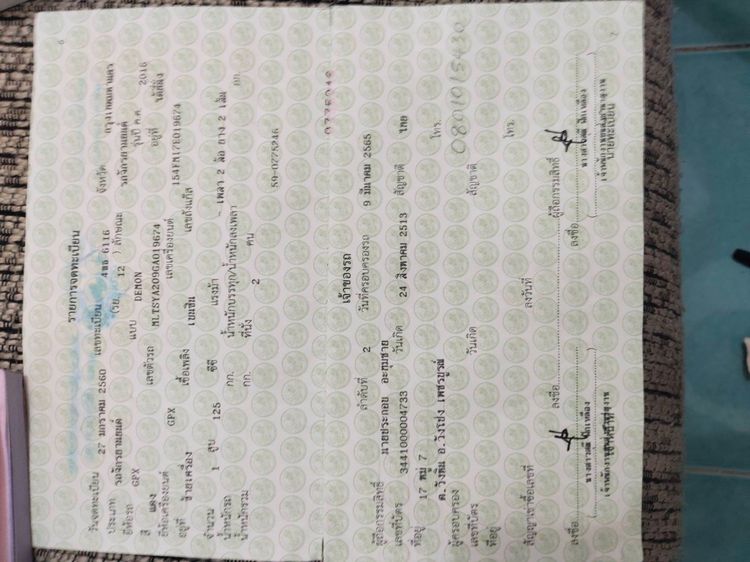 6
รายการจดทะเบียน
วันจดทะเบียน 27 มกราคม 2560 เลขทะเบียน 4ขฮ 6116 จังหวัด กรุงเทพมหานคร
ประเภท รถจักรยานยนต์ (รย. 12 ) ลักษณะ รถจักรยานยนต์
ยี่ห้อรถ GPX แบบ DEMON รุ่นปี ค.ศ. 2016
สี แดง เลขตัวรถ MLTSYA209GA019674 อยู่ที่ ใต้ที่นั่ง
ยี่ห้อเครื่องยนต์ GPX เลขเครื่องยนต์ 154FMI7E019674
อยู่ที่ ซ้ายเครื่อง เชื้อเพลิง เบนซิน เลขถังแก๊ส
จำนวน 1 สูบ 125 ซีซี แรงม้า - เพลา 2 ล้อ ยาง 2 เส้น
น้ำหนักรถ กก. น้ำหนักบรรทุก/น้ำหนักลงเพลา กก.
น้ำหนักรวม กก. ที่นั่ง 2 คน
59-0775246
7
เจ้าของรถ
ลำดับที่ 2 วันที่ครอบครองรถ 9 มีนาคม 2565
ผู้ถือกรรมสิทธิ์ นายประกอบ
เลขที่บัตร 3441000004733 วันเกิด 24 สิงหาคม 2513 สัญชาติ ไทย
ที่อยู่ 17 หมู่ 7 โทร.
ต.วังหิน อ.วังโป่ง เพชรบูรณ์
ผู้ครอบครอง 0801015430
เลขที่บัตร วันเกิด สัญชาติ
ที่อยู่ โทร.
สัญญาเช่าซื้อเลขที่ ลงวันที่
ลงชื่อ ผู้ถือกรรมสิทธิ์
ลงชื่อ ลงชื่อ
นายทะเบียน